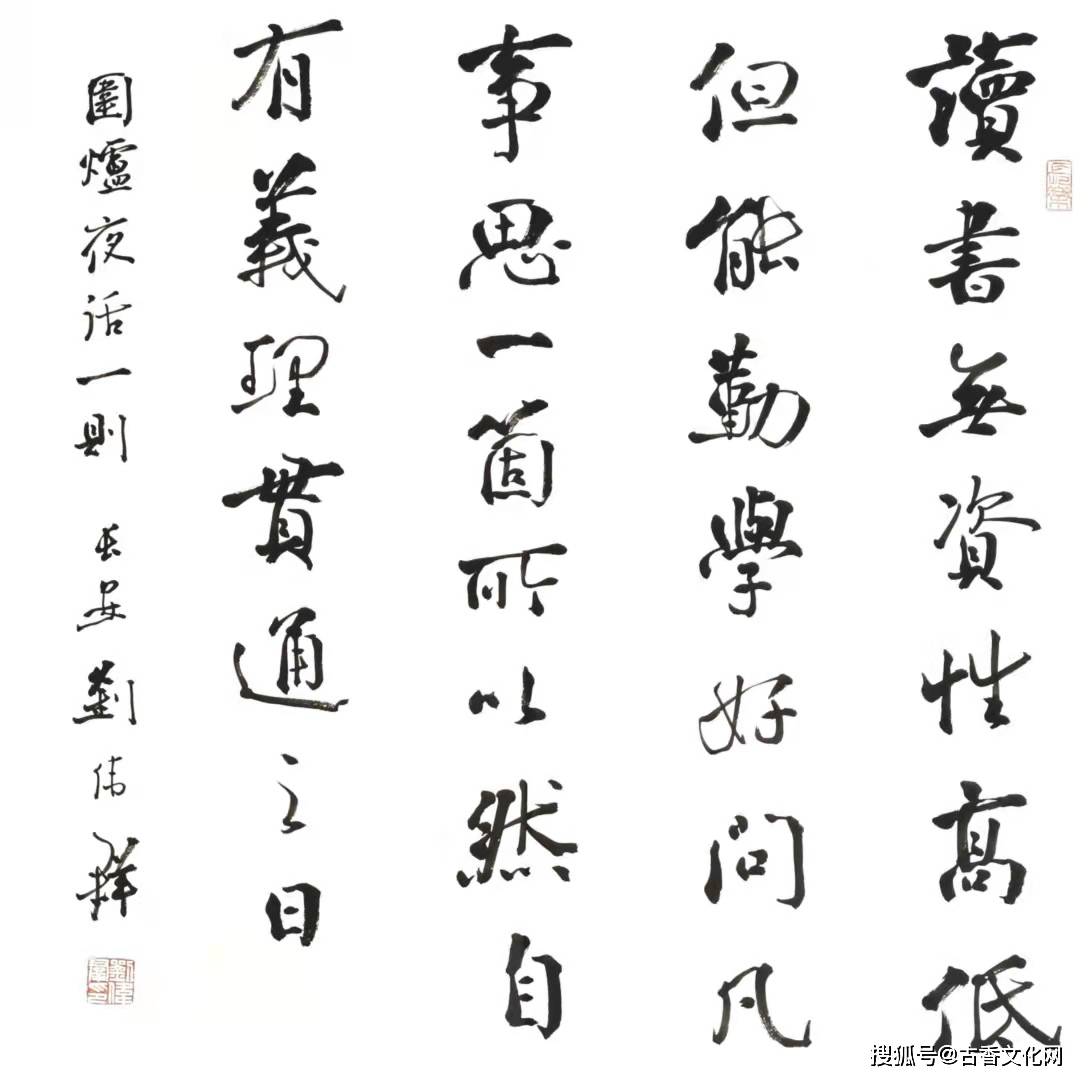 讀書無資性高低
但能勤學好問凡
事思一箇所以然自
有義理貫通之日
圍爐夜話一則 長安劉偉
搜狐号@古香文化网